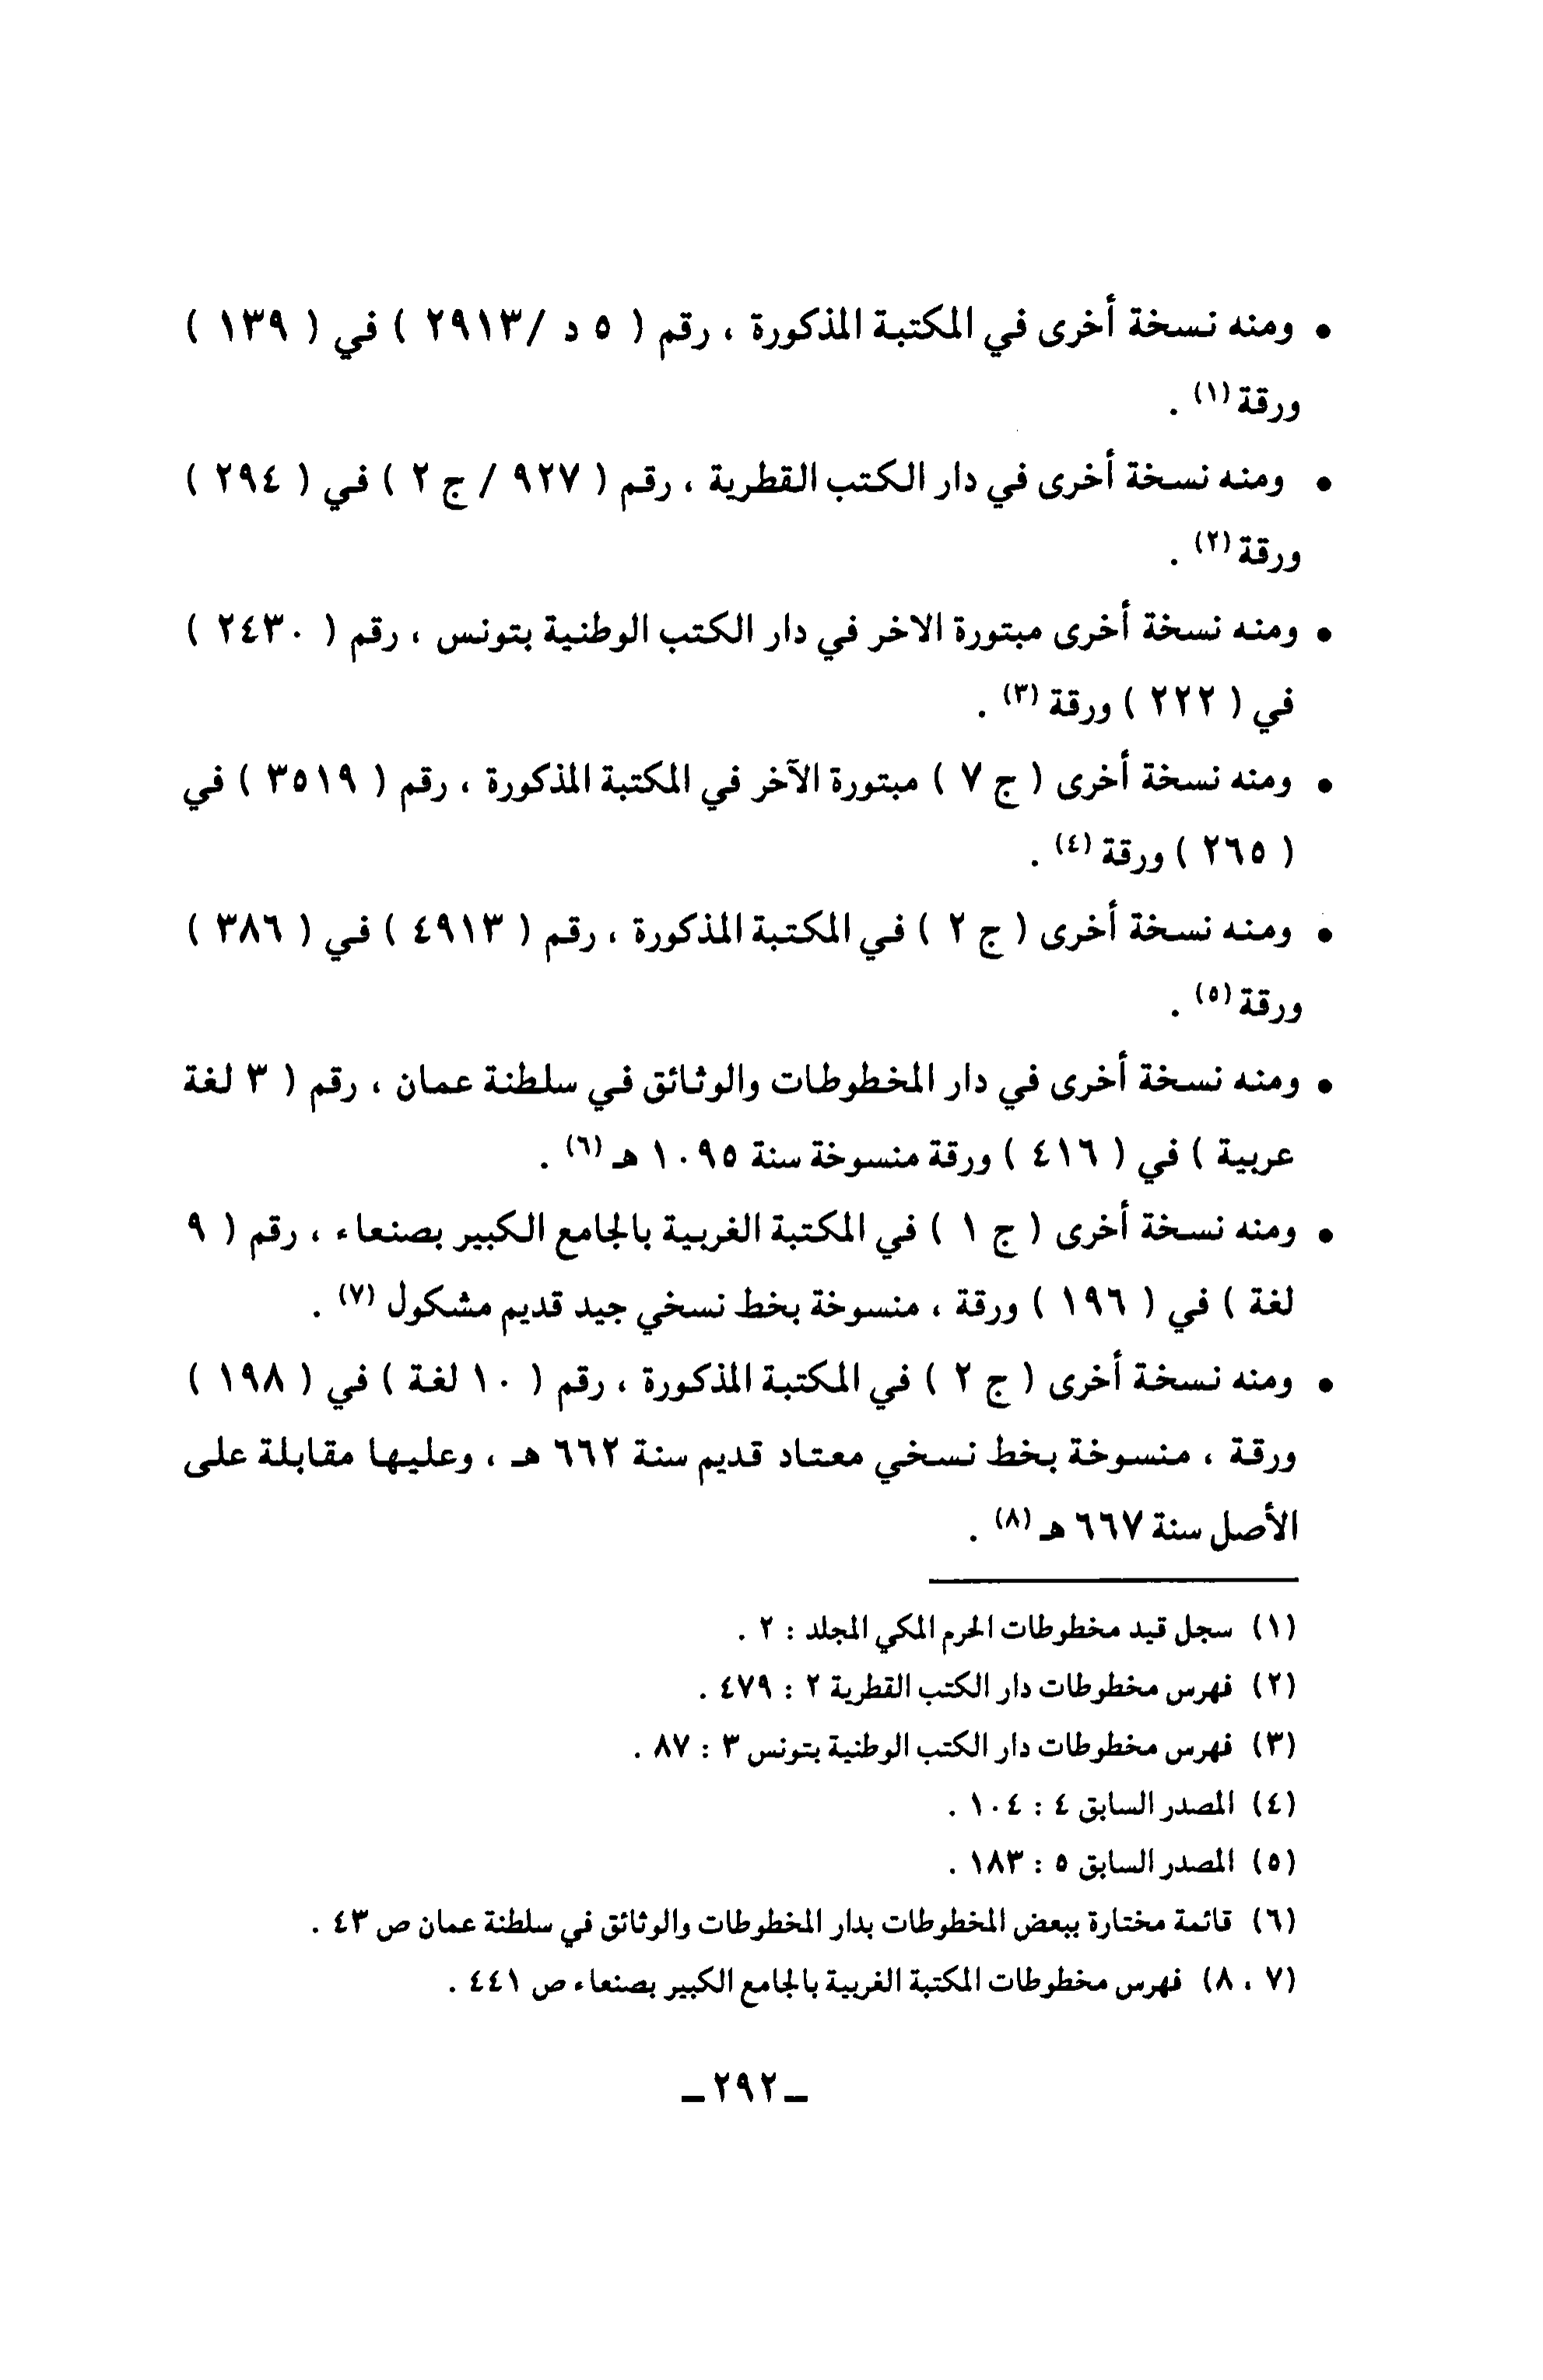 • ومنه نسخة أخرى في المكتبة المذكورة ، رقم ( ٥ د /٢٩١٣ ) في ( ١٣٩ )
ورقة (١) .
• ومنه نسخة أخرى في دار الكتب القطرية ، رقم ( ٩٢٧ / ج ٢ ) في ( ٢٩٤ )
ورقة (٢) .
• ومنه نسخة أخرى مبتورة الاخر في دار الكتب الوطنية بتونس ، رقم ( ٢٤٣٠ )
في ( ٢٢٢ ) ورقة (٣) .
• ومنه نسخة أخرى ( ج ٧ ) مبتورة الآخر في المكتبة المذكورة ، رقم ( ٣٥١٩ ) في
( ٢٦٥ ) ورقة (٤) .
• ومنه نسخة أخرى ( ج ٢ ) في المكتبة المذكورة ، رقم ( ٤٩١٣ ) في ( ٣٨٦ )
ورقة (٥) .
• ومنه نسخة أخرى في دار المخطوطات والوثائق في سلطنة عمان ، رقم ( ٣ لغة
عربية ) في ( ٤١٦ ) ورقة منسوخة سنة ١٠٩٥ هـ (٦) .
• ومنه نسخة أخرى ( ج ١ ) في المكتبة الغربية بالجامع الكبير بصنعاء ، رقم ( ٩
لغة ) في ( ١٩٦ ) ورقة ، منسوخة بخط نسخي جيد قديم مشكول (٧) .
• ومنه نسخة أخرى ( ج ٢ ) في المكتبة المذكورة ، رقم ( ١٠ لغة ) في ( ١٩٨ )
ورقة ، منسوخة بخط نسخي معتاد قديم سنة ٦٦٢ هـ ، وعليها مقابلة على
الأصل سنة ٦٦٧ هـ (٨) .
(١) سجل قيد مخطوطات الحرم المكي المجلد : ٢ .
(٢) فهرس مخطوطات دار الكتب القطرية ٢ : ٤٧٩ .
(٣) فهرس مخطوطات دار الكتب الوطنية بتونس ٣ : ٨٧ .
(٤) المصدر السابق ٤ : ١٠٤ .
(٥) المصدر السابق ٥ : ١٨٣ .
(٦) قائمة مختارة ببعض المخطوطات بدار المخطوطات والوثائق في سلطنة عمان ص ٤٣ .
(٧ ، ٨) فهرس مخطوطات المكتبة الغربية بالجامع الكبير بصنعاء ص ٤٤١ .
ـ ٢٩٢ ـ